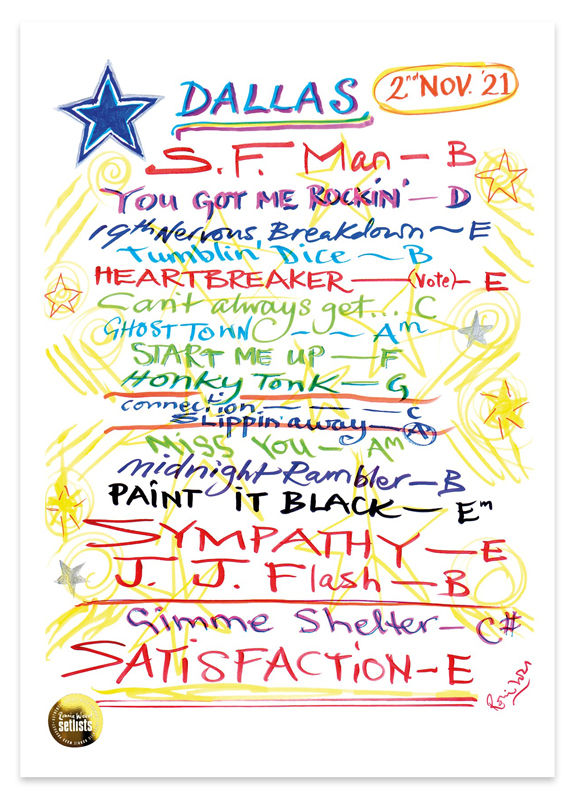 DALLAS
2nd NOV. '21
S.F. Man — B
YOU GOT ME ROCKIN' — D
19th Nervous Breakdown ~ E
Tumblin' Dice ~ B
HEARTBREAKER — (Vote) — E
Can't always get... C
GHOST TOWN - - - Am
START ME UP — F
Honky Tonk — G
connection — — — C
SLIPPIN' away — A
MISS YOU — Am
midnight Rambler — B
PAINT IT BLACK — Em
SYMPATHY — E
J. J. Flash — B
Gimme Shelter — C#
SATISFACTION — E
2021
Ronnie Wood
setlists